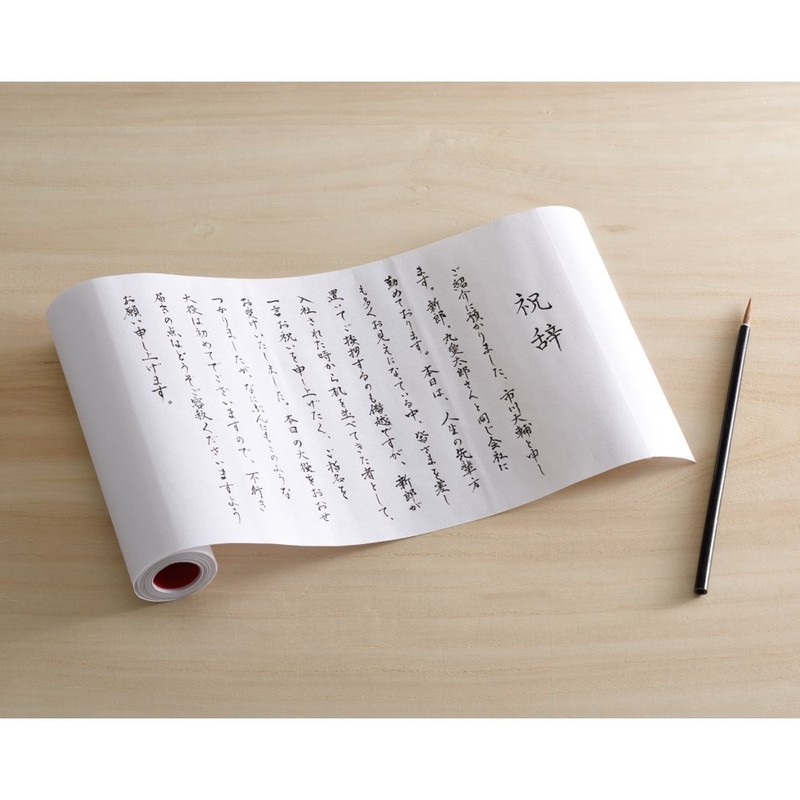 祝辞
ご紹介に預かりました、市川大輔と申し
ます。新郎・丸愛太郎さんと同じ会社に
勤めております。本日は、人生の先輩方
も多くお見えになっている中、皆さまを差し
置いてご挨拶するのも僭越ですが、新郎が
入社された時から机を並べてきた者として、
一言お祝いを申し上げたく、ご指名を
お受けいたしました。本日の大役をおおせ
つかりましたが、なにぶんにもこのような
大役は初めてでございますので、不行き
届きの点はどうぞご容赦くださいますよう
お願い申し上げます。